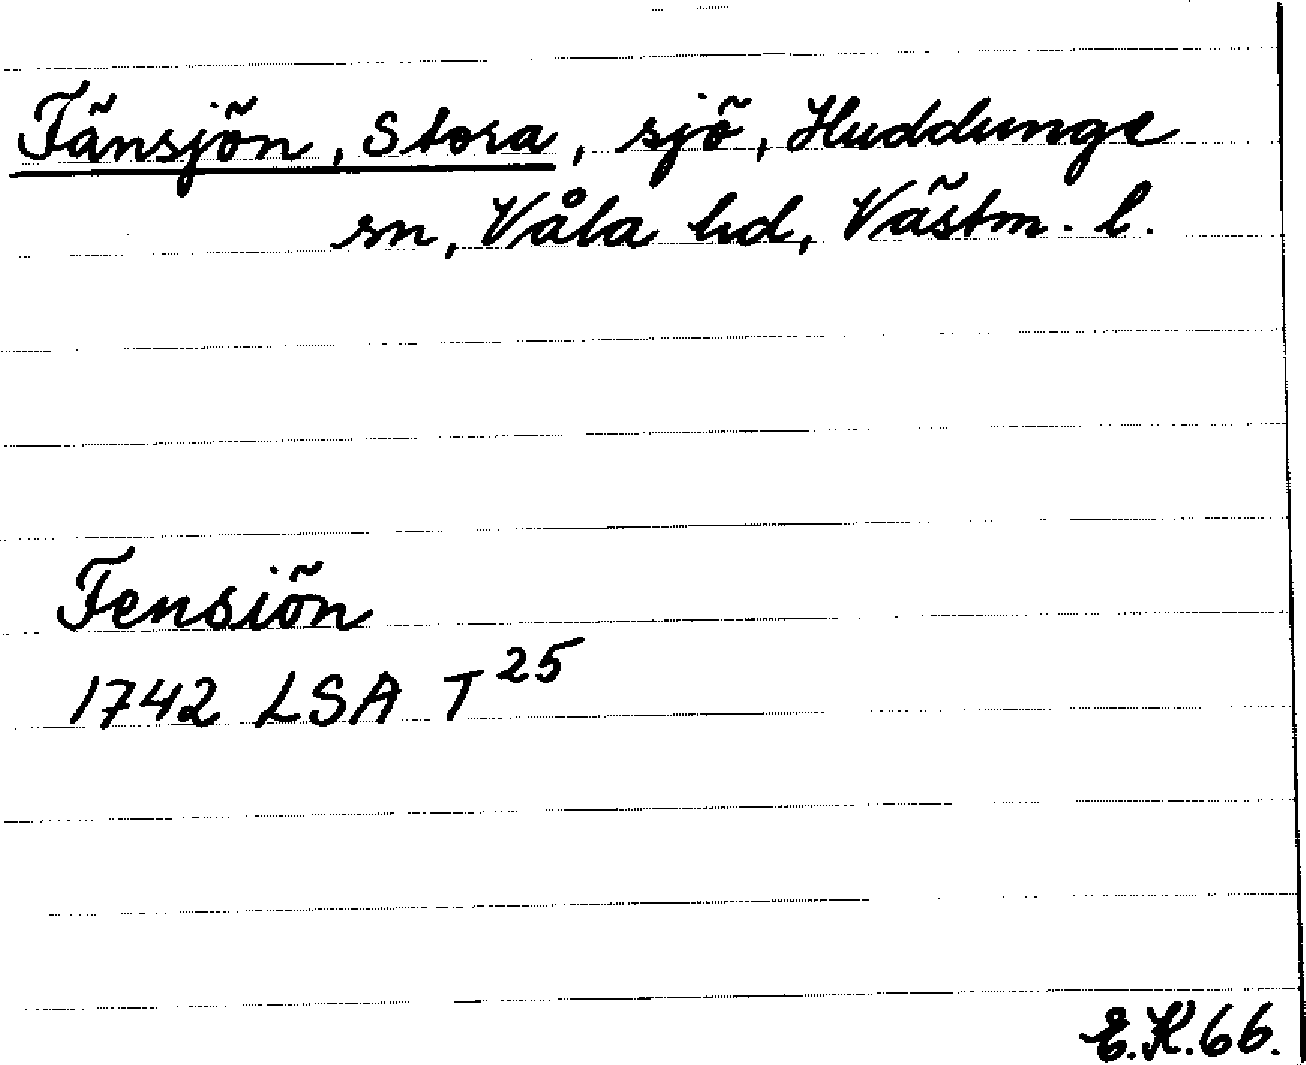 Tänsjön, Stora, sjö, Huddunge
sn, Våla hd, Västm. l.
Tensiön
1742 LSA T25
E.K.66.